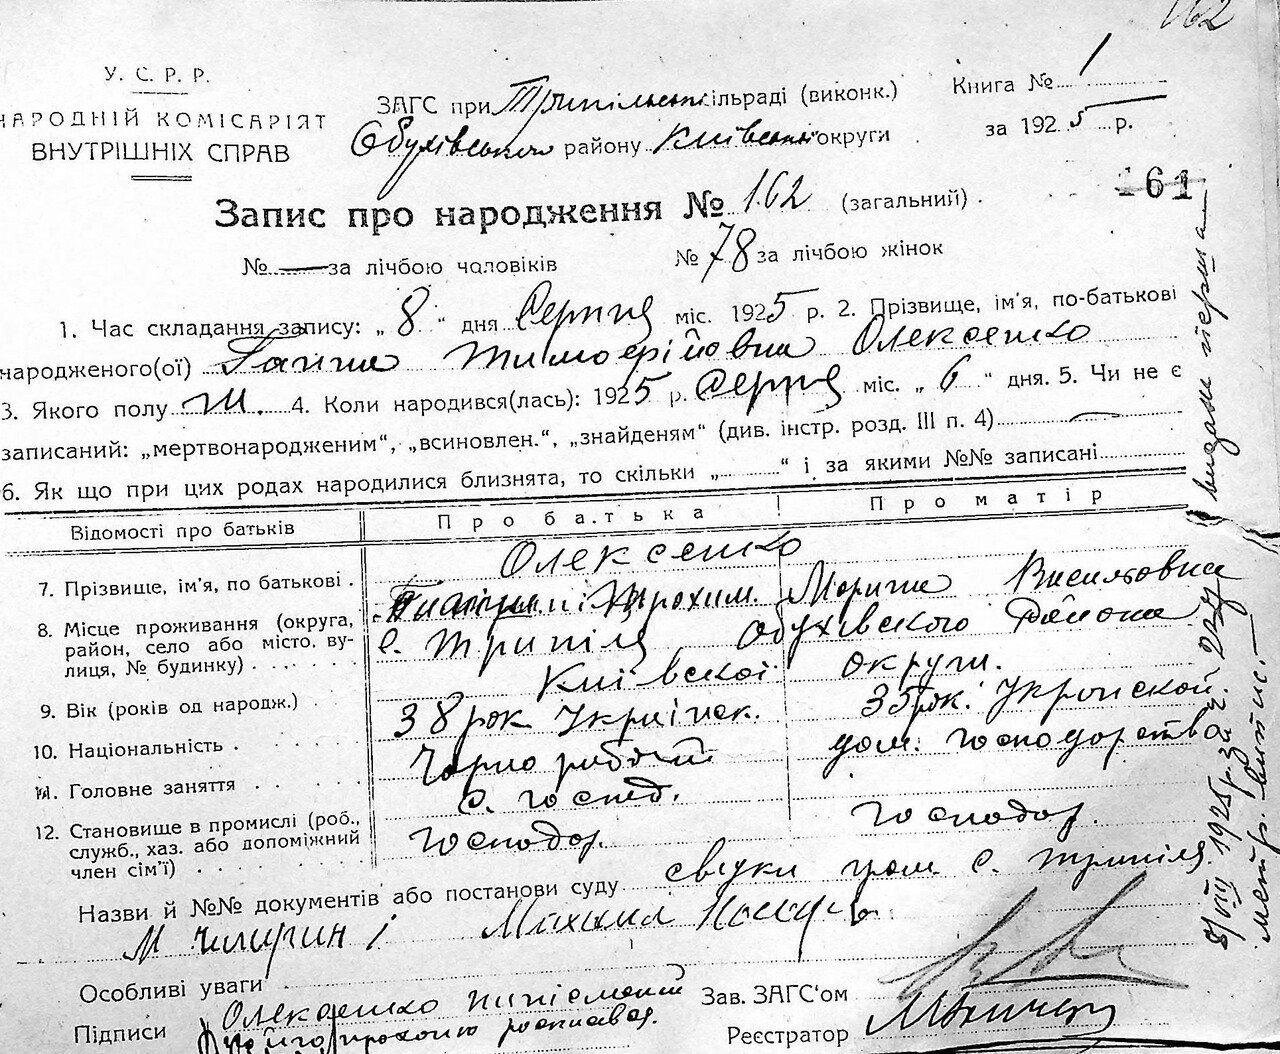 162
У. С. Р. Р.
НАРОДНІЙ КОМІСАРІЯТ
ВНУТРІШНІХ СПРАВ
ЗАГС при Трипільськ сільраді (виконк.)
Обухівського району Київської округи
Книга № 1
за 1925 р.
161
Запис про народження № 162 (загальний).
№ — за лічбою чоловіків № 78 за лічбою жінок
1. Час складання запису: „ 8 “ дня Серпня міс. 1925 р. 2. Прізвище, ім'я, по-батькові
народженого(ої) Ганна Тимофійовна Олексенко
3. Якого полу ж. 4. Коли народився(лась): 1925 р. Серпня міс. „ 6 “ дня. 5. Чи не є
записаний: „мертвонародженим“, „всиновлен.“, „знайденям“ (див. інстр. розд. III п. 4) —
6. Як що при цих родах народилися близнята, то скільки „ “ і за якими №№ записані
Відомості про батьків Про батька Про матір
7. Прізвище, ім'я, по батькові . Олексенко
Прохим. Марина Василовна
8. Місце проживання (округа, район, село або місто, вулиця, № будинку) . . . . с. Трипілля Обухівского Района
Київской округи.
9. Вік (років од народж.) . 38 рок 35 рок.
10. Національність . Українск. Украиской
11. Головне заняття . Чорно робочий дом. господарство
с. господ.
12. Становище в промислі (роб., служб., хаз. або допоміжний член сім'ї) . господар. господар.
Назви й №№ документів або постанови суду свідки гром. с. Трипілля
М і Михаил
Особливі уваги
Підписи Олексенко
його проханню росписався.
Зав. ЗАГС'ом
Реєстратор
видани перша
8/VIII 1925 р. за №
метр. витис.